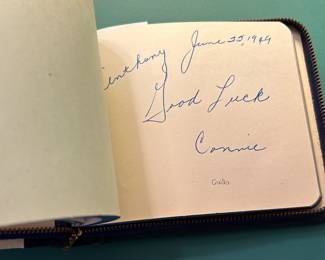 Anthony June 22, 1949
Good Luck
Connie